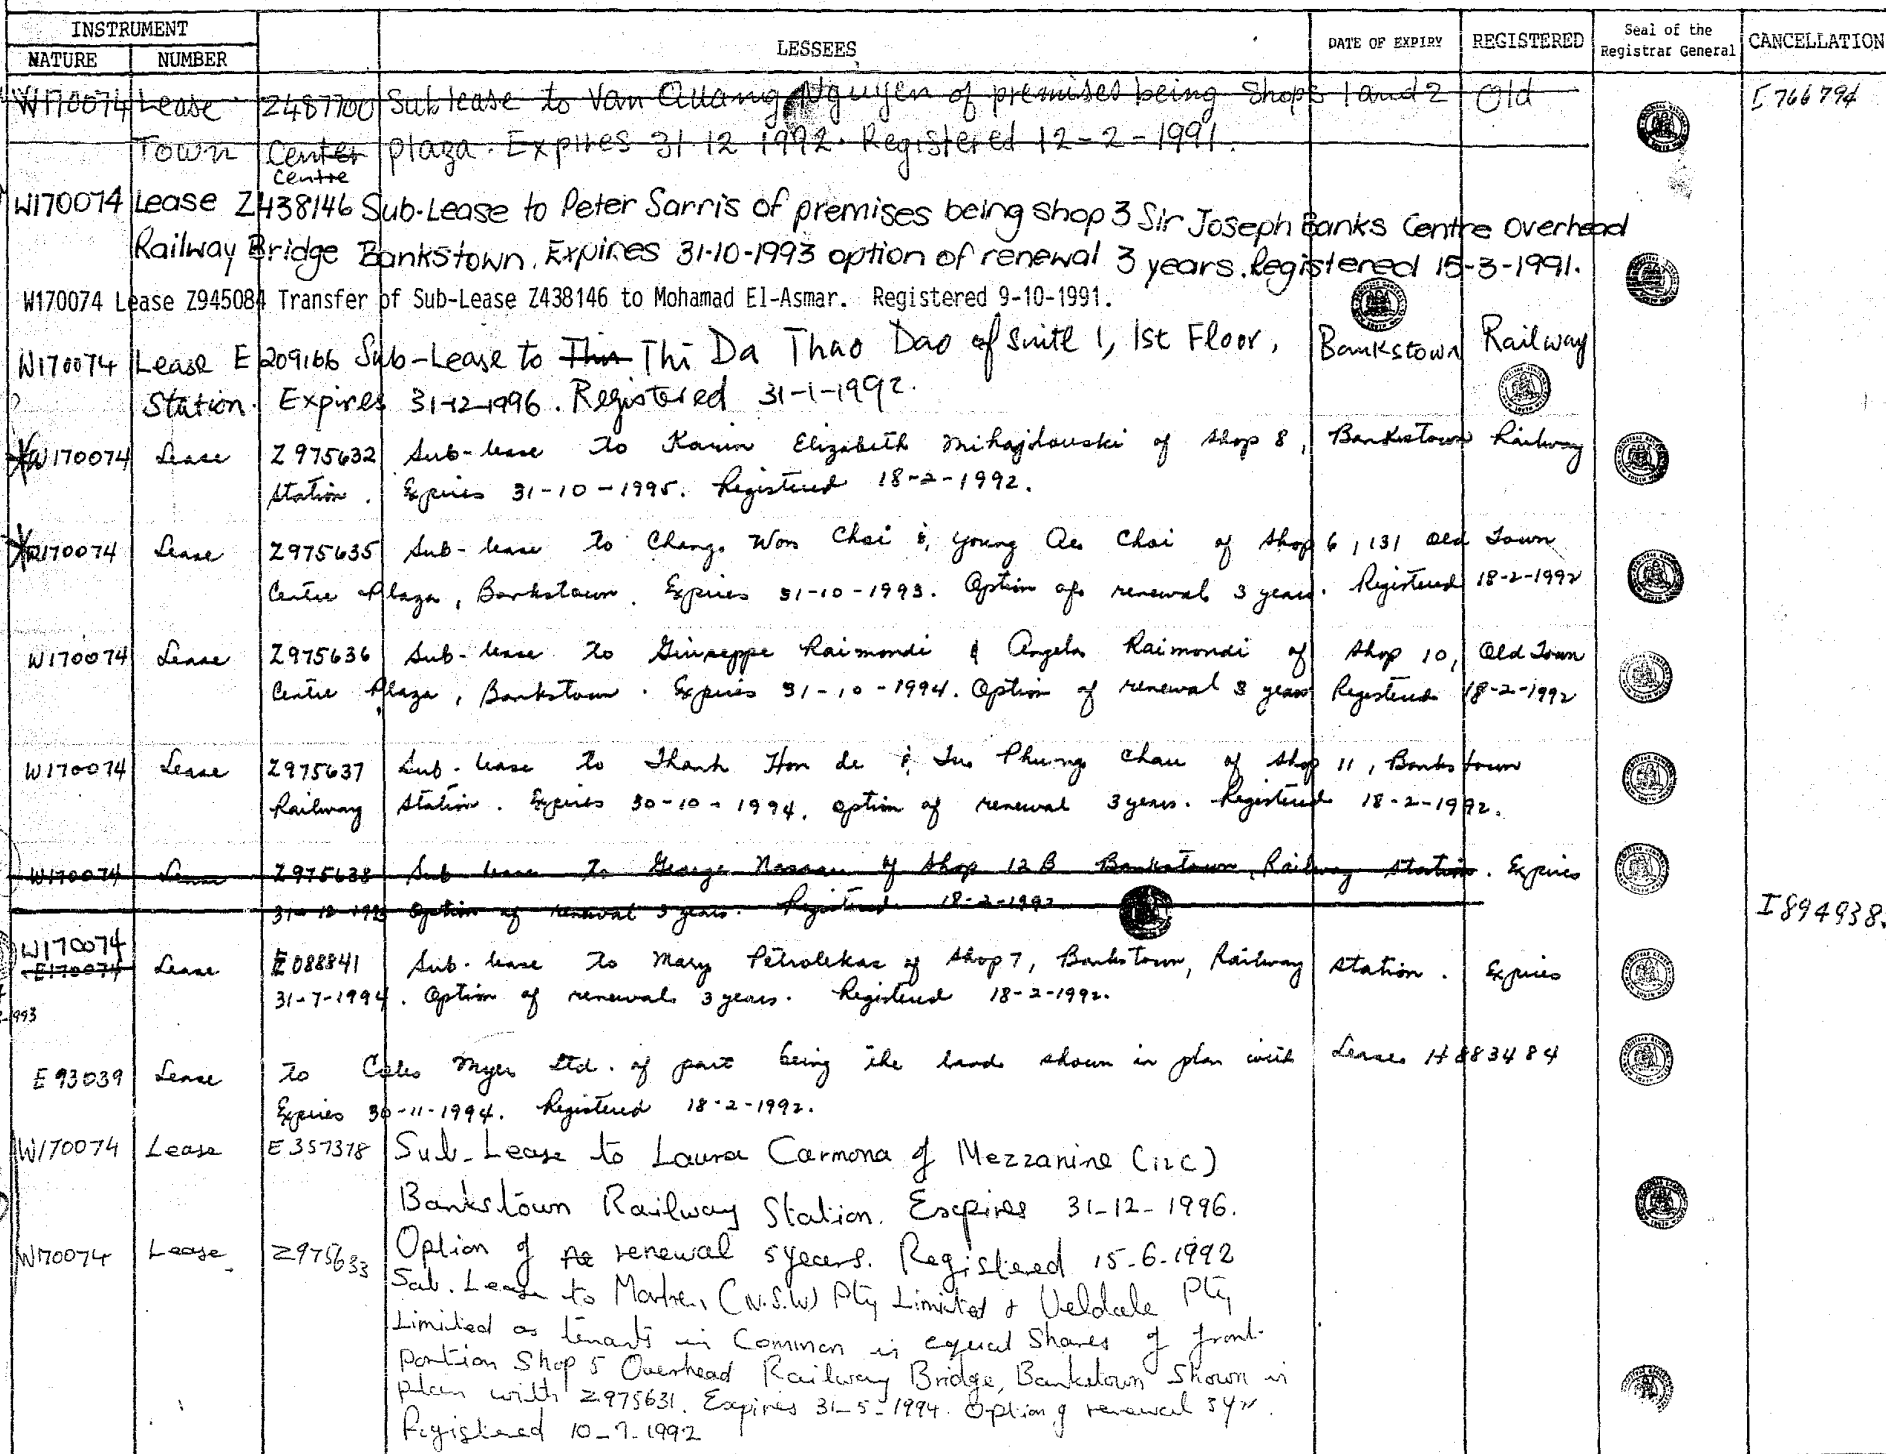 INSTRUMENT
NATURE NUMBER LESSEES DATE OF EXPIRY REGISTERED Seal of the Registrar General CANCELLATION
W170074 Lease Z487700 Sublease to Van Quang Nguyen of premises being Shops 1 and 2 Old I766794
Town Center plaza. Expires 31 12 1992. Registered 12-2-1991.
Centre
W170074 Lease Z438146 Sub-Lease to Peter Sarris of premises being shop 3 Sir Joseph Banks Centre Overhead
Railway Bridge Bankstown. Expires 31-10-1993 option of renewal 3 years. Registered 15-3-1991.
W170074 Lease Z945084 Transfer of Sub-Lease Z438146 to Mohamad El-Asmar. Registered 9-10-1991.
W170074 Lease E209166 Sub-Lease to Thi Da Thao Dao of Suite 1, 1st Floor, Bankstown Railway
Station. Expires 31-12-1996. Registered 31-1-1992.
W170074 Lease Z975632 Sub-lease to Karin Elizabeth Mihajlouski of Shop 8, Bankstown Railway
Station. Expires 31-10-1995. Registered 18-2-1992.
W170074 Lease Z975635 Sub-lease to Chang Won Choi & Young Ae Choi of Shop 6, 131 Old Town
Centre Plaza, Bankstown. Expires 31-10-1993. Option of renewal 3 years. Registered 18-2-1992
W170074 Lease Z975636 Sub-lease to Giuseppe Raimondi & Angela Raimondi of Shop 10, Old Town
Centre Plaza, Bankstown. Expires 31-10-1994. Option of renewal 3 years Registered 18-2-1992
W170074 Lease Z975637 Sub-lease to Thanh Hon de & Tu Phung Chau of Shop 11, Bankstown
Railway Station. Expires 30-10-1994. option of renewal 3 years. Registered 18-2-1992.
W170074 Lease Z975638 Sub lease to George Nassau of Shop 12B Bankstown, Railway Station. Expires
31-12-1993 Option of renewal 3 years. Registered 18-2-1992 I894938.
W170074
E170074 Lease E088841 Sub-lease to Mary Petrolekas of Shop 7, Bankstown, Railway Station. Expires
31-7-1994. Option of renewal 3 years. Registered 18-2-1992.
E93039 Lease to Coles Myer Ltd. of part being the land shown in plan with Lease H883484
Expires 30-11-1994. Registered 18-2-1992.
W170074 Lease E357378 Sub-Lease to Laura Carmona of Mezzanine (12C)
Bankstown Railway Station. Expires 31-12-1996.
Option of renewal 5 years. Registered 15-6-1992
W170074 Lease Z975633 Sub. Lease to (N.S.W) Pty Limited & Veldale Pty
Limited as tenants in Common in equal Shares of front
portion Shop 5 Overhead Railway Bridge, Bankstown Shown in
plan with Z975631. Expires 31-5-1994. Option of renewal 3yr.
Registered 10-7-1992